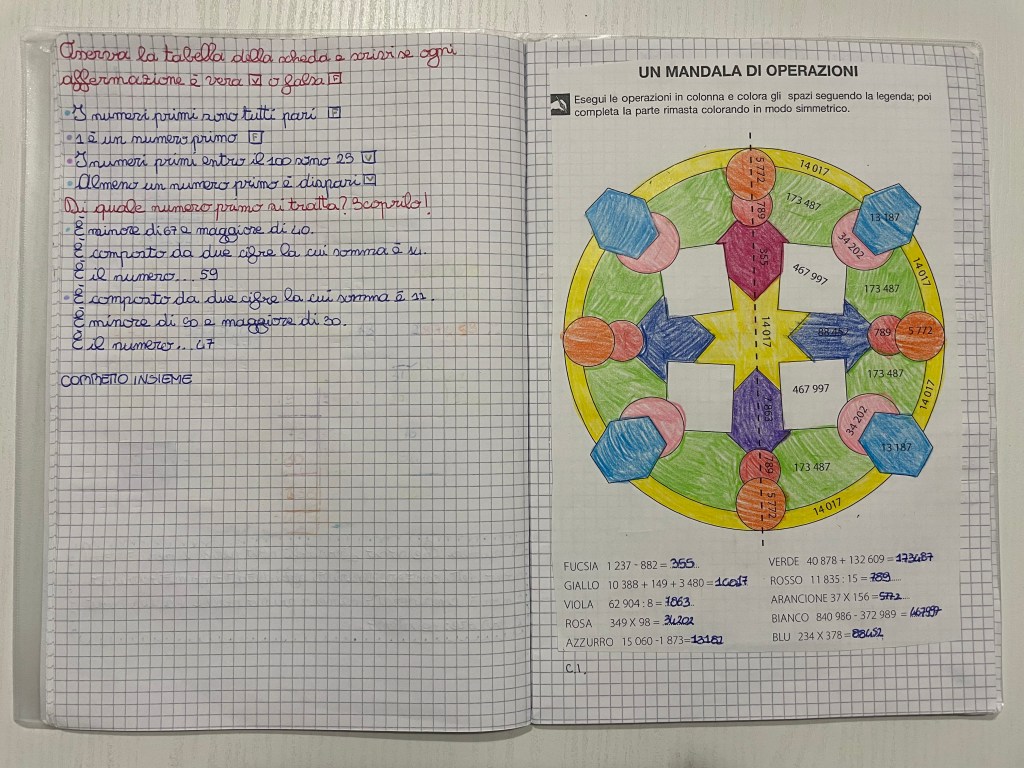 Osserva la tabella della scheda e scrivi se ogni
affermazione è vera V o falsa F
• I numeri primi sono tutti pari F
• 1 è un numero primo F
• I numeri primi entro il 100 sono 25 V
• Almeno un numero primo è dispari V
Di quale numero primo si tratta? Scoprilo!
• È minore di 67 e maggiore di 40.
È composto da due cifre la cui somma è 14.
È il numero... 59
• È composto da due cifre la cui somma è 11.
È minore di 50 e maggiore di 30.
È il numero... 47
CORRETTO INSIEME
UN MANDALA DI OPERAZIONI
Esegui le operazioni in colonna e colora gli spazi seguendo la legenda; poi
completa la parte rimasta colorando in modo simmetrico.
5 772
14 017
789
173 487
13 187
34 202
355
467 997
14 017
173 487
14 017
88452
789
5 772
173 487
467 997
14 017
34 202
7 863
13 187
789
173 487
5 772
14 017
FUCSIA 1 237 - 882 = 355
GIALLO 10 388 + 149 + 3 480 = 14017
VIOLA 62 904 : 8 = 7863
ROSA 349 X 98 = 34202
AZZURRO 15 060 -1 873=13187
VERDE 40 878 + 132 609 = 173487
ROSSO 11 835 : 15 = 789
ARANCIONE 37 X 156 = 5772
BIANCO 840 986 - 372 989 = 467997
BLU 234 X 378 = 88452
C.I.